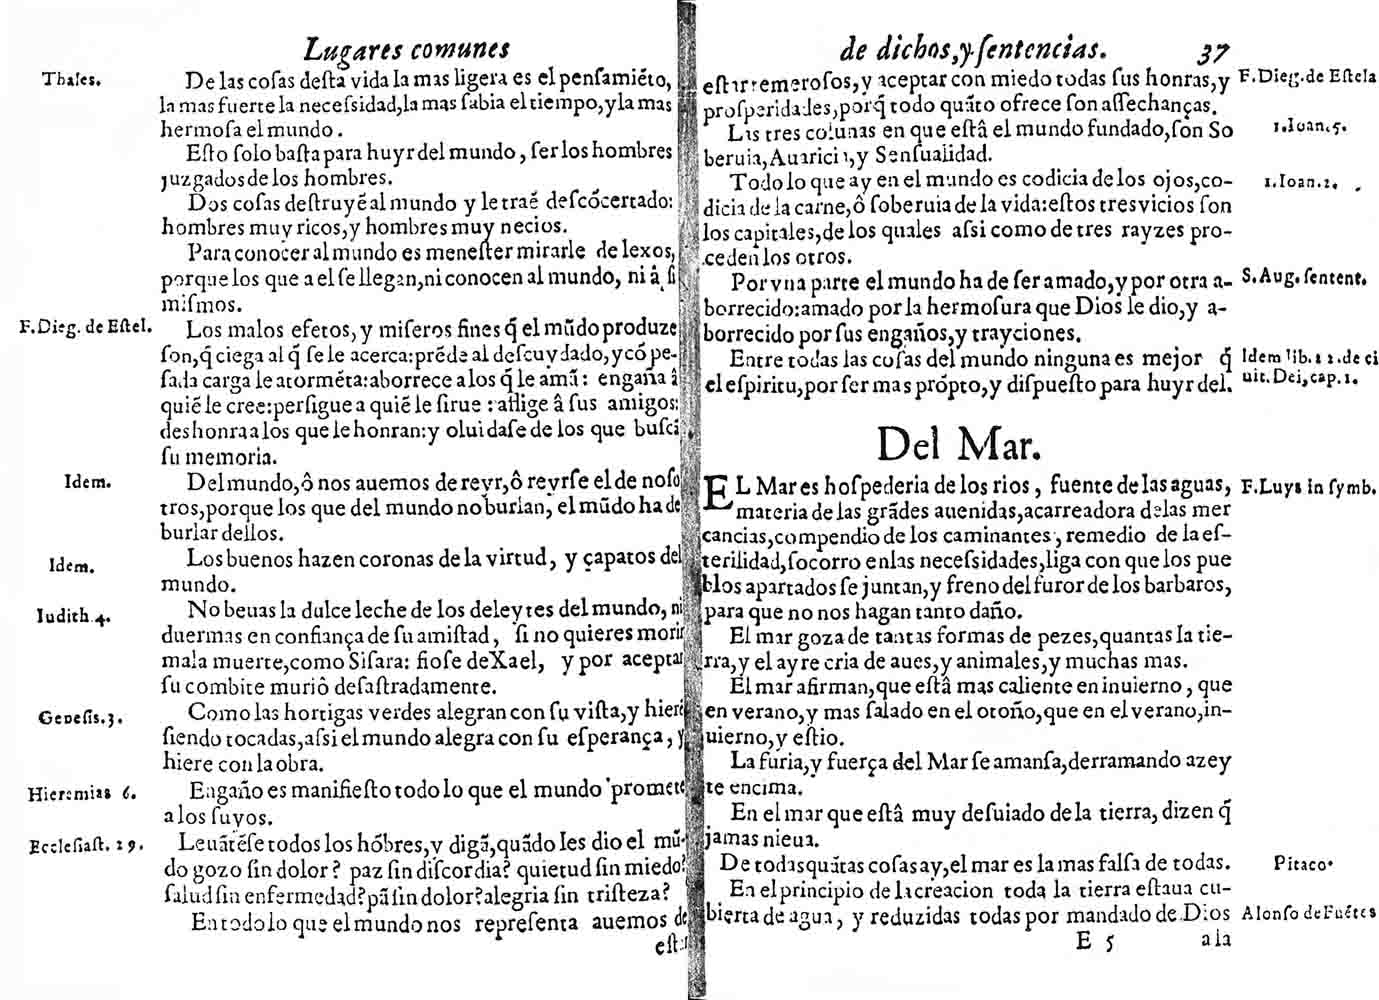 Lugares comunes
Thales.
De las coſas deſta vida la mas ligera es el penſamiẽto,
la mas fuerte la neceſsidad, la mas ſabia el tiempo, y la mas
hermoſa el mundo.
Eſto ſolo baſta para huyr del mundo, ſer los hombres
juzgados de los hombres.
Dos coſas deſtruyẽ al mundo y le traẽ deſcõcertado:
hombres muy ricos, y hombres muy necios.
Para conocer al mundo es meneſter mirarle de lexos,
porque los que a el ſe llegan, ni conocen al mundo, ni â ſi
miſmos.
F. Dieg. de Eſtel.
Los malos efetos, y miſeros fines q̃ el mũdo produze
ſon, q̃ ciega al q̃ ſe le acerca: prẽde al deſcuydado, y cõ pe-
ſada carga le atormẽta: aborrece a los q̃ le amã: engaña â
quiẽ le cree: perſigue a quiẽ le ſirue: aflige â ſus amigos:
deshonra a los que le honran: y oluidaſe de los que buſcã
ſu memoria.
Idem.
Del mundo, ô nos auemos de reyr, ô reyrſe el de noſo
tros, porque los que del mundo no burlan, el mũdo ha de
burlar dellos.
Idem.
Los buenos hazen coronas de la virtud, y çapatos del
mundo.
Iudith 4.
No beuas la dulce leche de los deleytes del mundo, ni
duermas en confiança de ſu amiſtad, ſi no quieres morir
mala muerte, como Siſara: fioſe de Xael, y por aceptar
ſu combite muriô deſaſtradamente.
Geneſis. 3.
Como las hortigas verdes alegran con ſu viſta, y hierẽ
ſiendo tocadas, aſsi el mundo alegra con ſu eſperança, y
hiere con la obra.
Hieremias 6.
Engaño es manifieſto todo lo que el mundo promete
a los ſuyos.
Eccleſiaſt. 29.
Leuãtẽſe todos los hõbres, y digã, quãdo les dio el mũ-
do gozo ſin dolor? paz ſin diſcordia? quietud ſin miedo?
ſalud ſin enfermedad? pã ſin dolor? alegria ſin triſteza?
En todo lo que el mundo nos repreſenta auemos de
eſtar
de dichos, y ſentencias. 37
eſtar temeroſos, y aceptar con miedo todas ſus honras, y
F. Dieg. de Eſtela
proſperidades, porq̃ todo quãto ofrece ſon aſſechanças.
Las tres colunas en que eſtâ el mundo fundado, ſon So
1. Ioan. 5.
beruia, Auaricia, y Senſualidad.
Todo lo que ay en el mundo es codicia de los ojos, co-
1. Ioan. 2.
dicia de la carne, ô ſoberuia de la vida: eſtos tres vicios ſon
los capitales, de los quales aſsi como de tres rayzes pro-
ceden los otros.
Por vna parte el mundo ha de ſer amado, y por otra a-
S. Aug. ſentent.
borrecido: amado por la hermoſura que Dios le dio, y a-
borrecido por ſus engaños, y trayciones.
Entre todas las coſas del mundo ninguna es mejor q̃
Idem lib. 22. de ci
el eſpiritu, por ſer mas prõpto, y diſpueſto para huyr del.
uit. Dei, cap. 1.
Del Mar.
EL Mar es hoſpederia de los rios, fuente de las aguas,
F. Luys in ſymb.
materia de las grãdes auenidas, acarreadora delas mer
cancias, compendio de los caminantes, remedio de la eſ-
terilidad, ſocorro en las neceſsidades, liga con que los pue
blos apartados ſe juntan, y freno del furor de los barbaros,
para que no nos hagan tanto daño.
El mar goza de tantas formas de pezes, quantas la tie-
rra, y el ayre cria de aues, y animales, y muchas mas.
El mar afirman, que eſtâ mas caliente en inuierno, que
en verano, y mas ſalado en el otoño, que en el verano, in-
uierno, y eſtio.
La furia, y fuerça del Mar ſe amanſa, derramando azey
te encima.
En el mar que eſtâ muy deſuiado de la tierra, dizen q̃
jamas nieua.
De todas quãtas coſas ay, el mar es la mas falſa de todas.
Pitaco.
En el principio de la creacion toda la tierra eſtaua cu-
bierta de agua, y reduzidas todas por mandado de Dios
Alonſo de Fuẽtes
E 5 a la